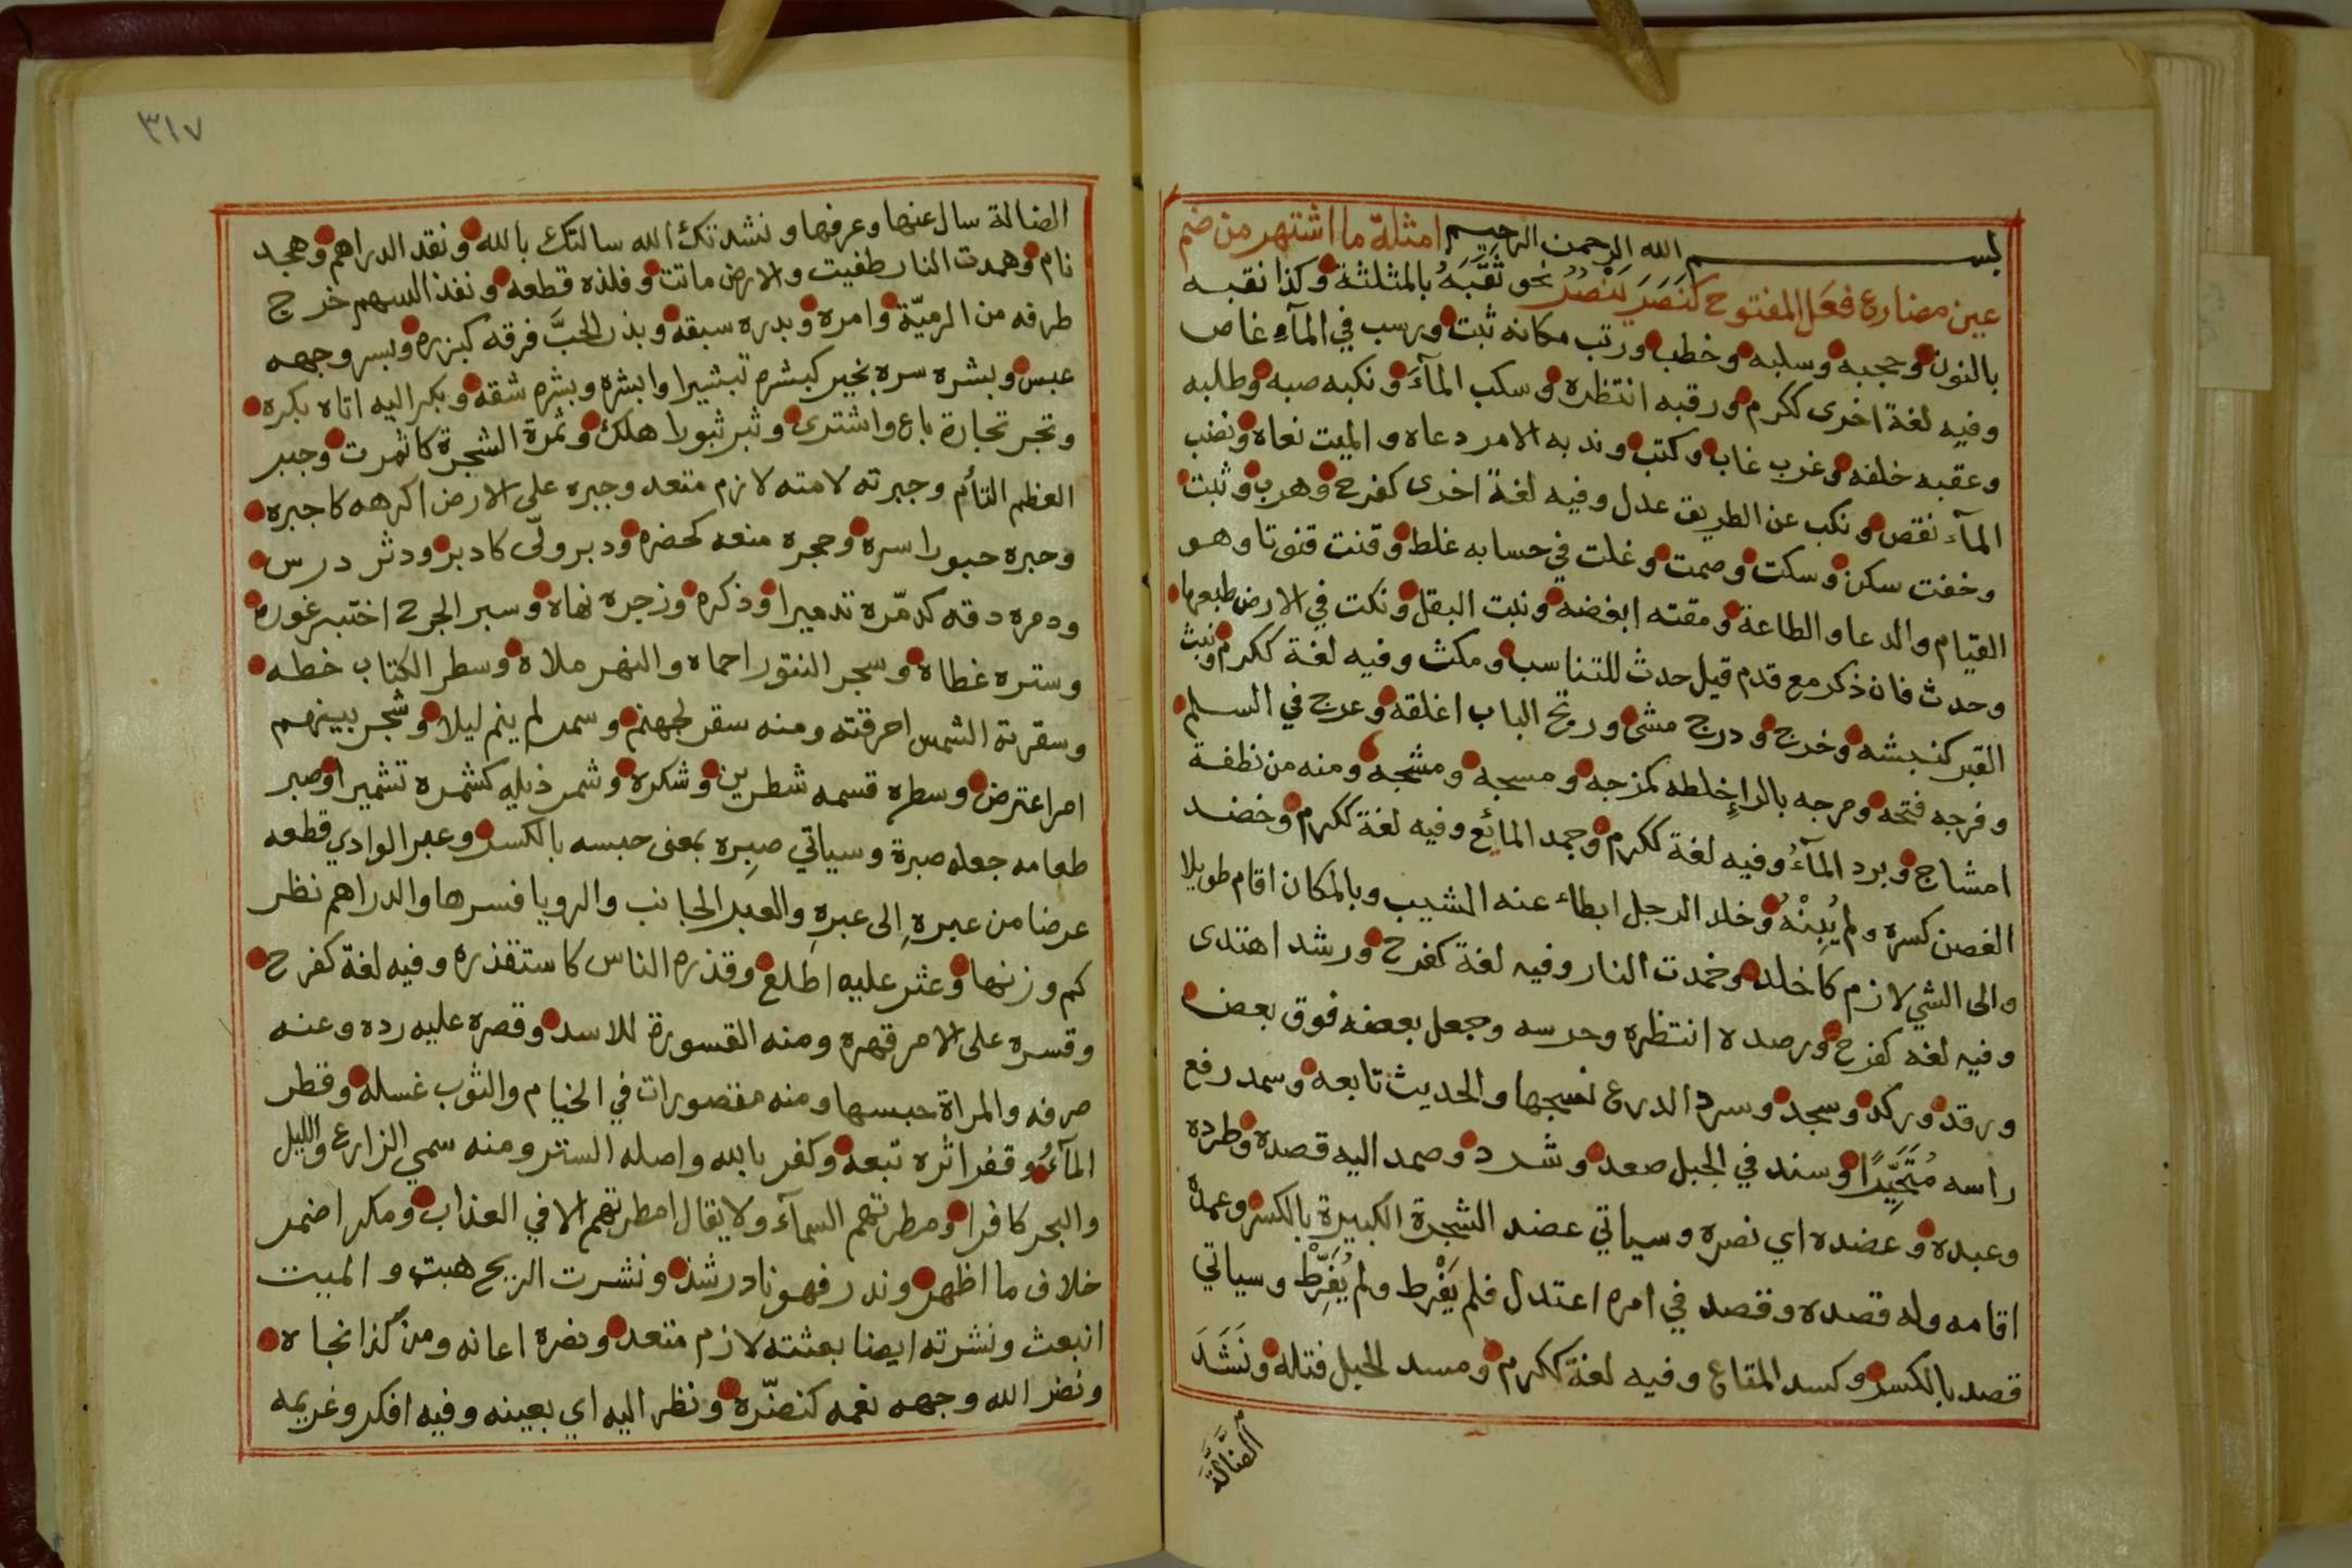 بســـــم الله الرحمن الرحيم امثلة ما اشتهر من ضم
عين مضارع فعَل المفتوح كنَصَرَ يَنْصُرُ نحو ثَقَبَهُ بالمثلثة وكذا نقبه
بالنون وحجبه وسلبه وخطب ورتب مكانه ثبت ورسب في المآء غاص
وفيه لغةً اخرى ككرم ورقبه انتظره وسكب المآءَ ونكبه صبه وطلبه
وعقبه خلفه وغرب غاب وكتب وندبه الامر دعاه والميت نعاه ونضب
المآء نقص ونكب عن الطريق عدل وفيه لغةً اخرى كفرح وهرب وثبت
وخفت سكن وسكت وصمت وغلت في حسابه غلط وقنت قنوتا وهو
القيام والدعا والطاعة ومقته ابغضه ونبت البقل ونكت في الارض طبعها
وحدث فان ذكر مع قدم قيل حدث للتناسب ومكث وفيه لغة ككرم ونبث
القبر كنبشه وخرج ودرج مشى ورتج الباب اغلقه وعرج في السلم
وفرجه فتحه ومرجه بالراءِ خلطه كمزجه ومسجه ومشجه ومنه من نطفة
امشاج وبرد المآءُ وفيه لغة ككرم وجمد المائع وفيه لغة ككرم وخضد
الغصن كسره ولم يُبِنْهُ وخلد الرجل ابطاء عنه الشيب وبالمكان اقام طويلا
والى الشي لازم كاخلد وخمدت النار وفيه لغة كفرح ورشد اهتدى
وفيه لغه كفرح ورصده انتظره وحرسه وجعل بعضه فوق بعض
ورقد وركد وسجد وسرد الدرع نسجها والحديث تابعه وسمد رفع
راسه مُتَحَيِّرًا وسند في الجبل صعد وشرد وصمد اليه قصده وطرده
وعبده وعضده اي نصره وسياتي عضد الشجرة الكبيرة بالكسر وعمده
اقامه وله قصده وقصد في امره اعتدل فلم يَفْرط ولم يُفَرِّطْ وسياتي
قصد بالكسر وكسد المقاع وفيه لغة ككرم ومسد الحبل فتله ونَشَدَ
الضَّالَّةَ
٣١٧
الضالة سال عنها وعرفها ونشدتك الله سالتك بالله ونقد الدراهم وهجد
نام وهمدت النار طفيت والارض ماتت وفلذه قطعه ونفذ السهم خرج
طرفه من الرميّة وامره وبدره سبقه وبذر الحبَّ فرقه كبزره وبسر وجهه
عبس وبشره سره بخير كبشره تبشيرا وابشره وبشره شقه وبكر اليه اتاه بكره
وتجر تجارة باع واشترى وثبر ثبورا هلك وثمرة الشجرة كاثمرت وجبر
العظم التأم وجبرته لامته لازم متعد وجبره على الارض اكرهه كاجبره
وحبره حبورا سره وحجره منعه كحضره ودبر ولّى كادبر ودثر درس
ودمره دقه كدمّره تدميرا وذكره وزجره نهاه وسبر الجرح اختبر غوره
وستره غطاه وسجر التنور احماه والنهر ملاه وسطر الكتاب خطه
وسقرته الشمس احرقته ومنه سقر لجهنم وسمر لم ينم ليلا وشجر بينهم
امر اعترض وسطره قسمه شطرين وشكره وشمر ذيله كشمره تشميرا وصبر
طعامه جعله صبرة وسياتي صبِره بمعنى حبسه بالكسر وعبر الوادي قطعه
عرضا من عبرهِ الى عبرهِ والعبر الجانب والرويا فسرها والدراهم نظر
كم وزنها وعثر عليه اطلع وقذره الناس كاستقذره وفيه لغة كفرح
وقسره على الامر قهره ومنه القسورة للاسد وقصره عليه رده وعنه
صرفه والمراة حبسها ومنه مقصورات في الخيام والثوب غسله وقطر
المآءُ وقفر اثره تبعه وكفر بالله واصله الستر ومنه سمي الزارع والليل
والبحر كافرا ومطرتهم السمآء ولا يقال امطرتهم الا في العذاب ومكر اضمر
خلاف ما اظهر وندر فهو نادر شذ ونشرت الريح هبت والميت
انبعث ونشرته ايضا بعثته لازم متعد ونصره اعانه ومن كذا نجاه
ونضر الله وجهه نعمه كنضّره ونظر اليه اي بعينه وفيه افكر وغريمه